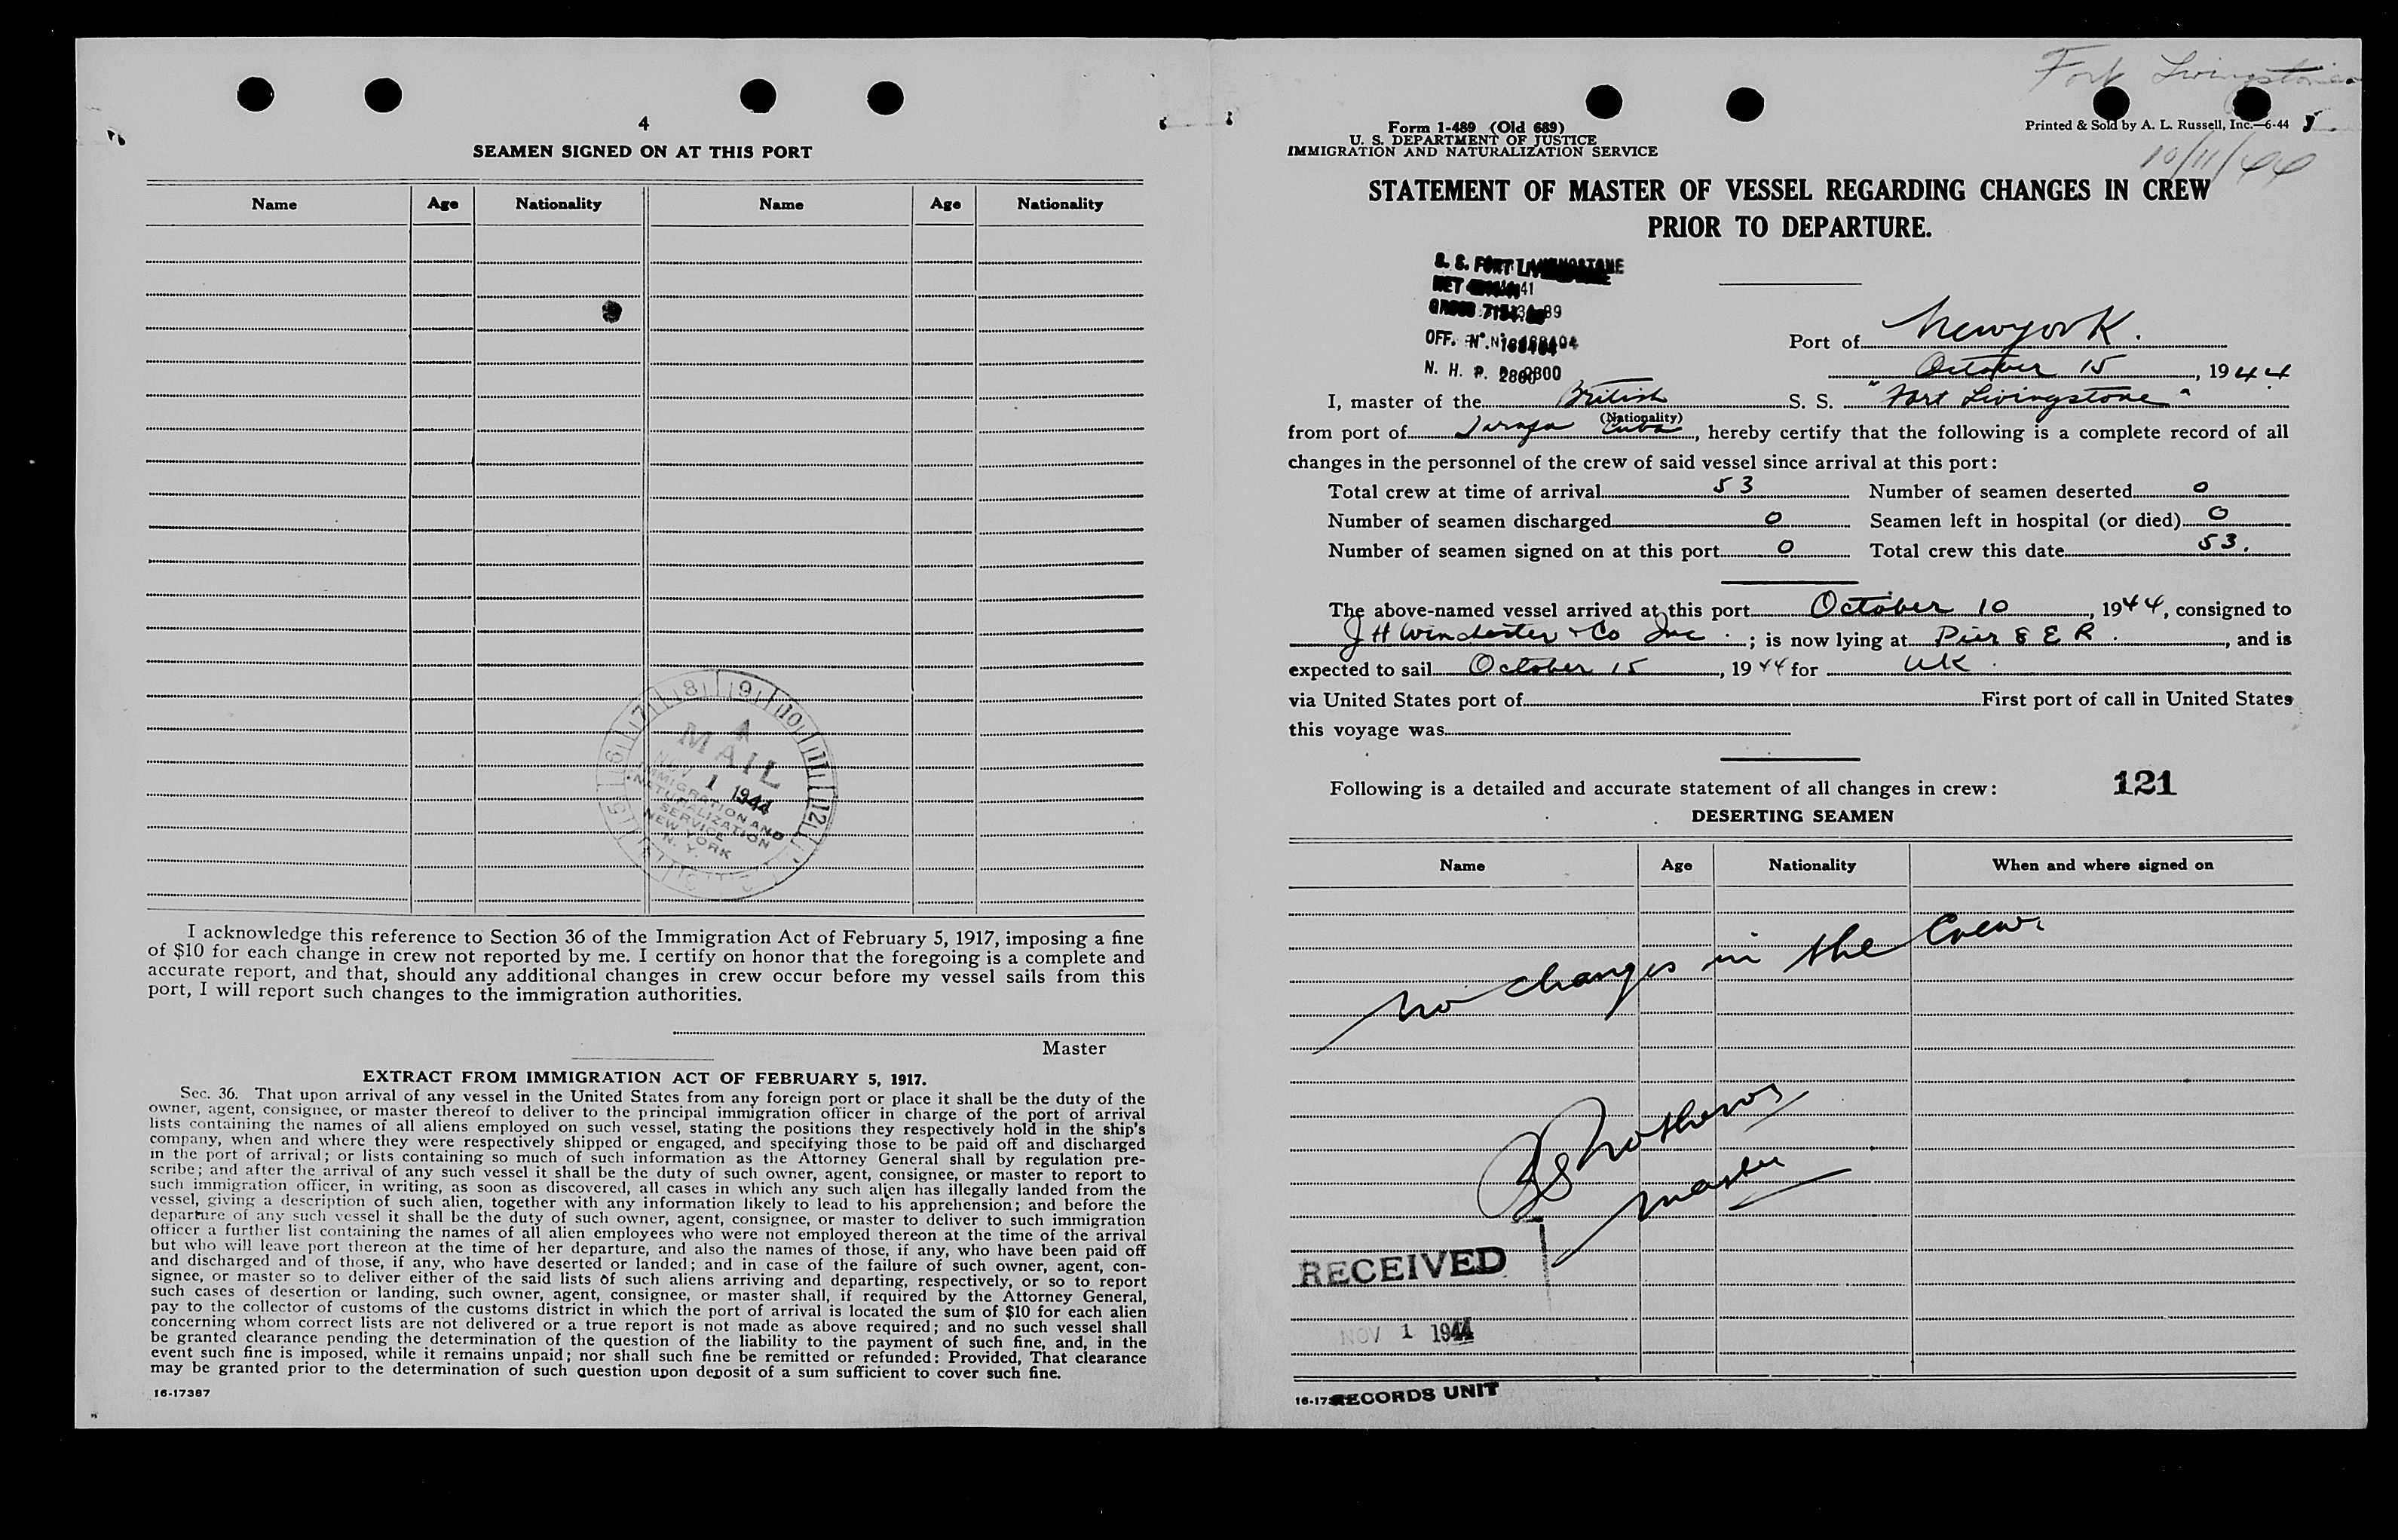 4
SEAMEN SIGNED ON AT THIS PORT
Name Age Nationality Name Age Nationality
A
MAIL
NOV 1 1944
IMMIGRATION AND
NATURALIZATION
SERVICE
NEW YORK
N. Y.
I acknowledge this reference to Section 36 of the Immigration Act of February 5, 1917, imposing a fine
of $10 for each change in crew not reported by me. I certify on honor that the foregoing is a complete and
accurate report, and that, should any additional changes in crew occur before my vessel sails from this
port, I will report such changes to the immigration authorities.
Master
EXTRACT FROM IMMIGRATION ACT OF FEBRUARY 5, 1917.
Sec. 36. That upon arrival of any vessel in the United States from any foreign port or place it shall be the duty of the
owner, agent, consignee, or master thereof to deliver to the principal immigration officer in charge of the port of arrival
lists containing the names of all aliens employed on such vessel, stating the positions they respectively hold in the ship's
company, when and where they were respectively shipped or engaged, and specifying those to be paid off and discharged
in the port of arrival; or lists containing so much of such information as the Attorney General shall by regulation pre-
scribe; and after the arrival of any such vessel it shall be the duty of such owner, agent, consignee, or master to report to
such immigration officer, in writing, as soon as discovered, all cases in which any such alien has illegally landed from the
vessel, giving a description of such alien, together with any information likely to lead to his apprehension; and before the
departure of any such vessel it shall be the duty of such owner, agent, consignee, or master to deliver to such immigration
officer a further list containing the names of all alien employees who were not employed thereon at the time of the arrival
but who will leave port thereon at the time of her departure, and also the names of those, if any, who have been paid off
and discharged and of those, if any, who have deserted or landed; and in case of the failure of such owner, agent, con-
signee, or master so to deliver either of the said lists of such aliens arriving and departing, respectively, or so to report
such cases of desertion or landing, such owner, agent, consignee, or master shall, if required by the Attorney General,
pay to the collector of customs of the customs district in which the port of arrival is located the sum of $10 for each alien
concerning whom correct lists are not delivered or a true report is not made as above required; and no such vessel shall
be granted clearance pending the determination of the question of the liability to the payment of such fine, and, in the
event such fine is imposed, while it remains unpaid; nor shall such fine be remitted or refunded: Provided, That clearance
may be granted prior to the determination of such question upon deposit of a sum sufficient to cover such fine.
16-17387
Fort Livingstone
Form 1-489 (Old 689)
U. S. DEPARTMENT OF JUSTICE
IMMIGRATION AND NATURALIZATION SERVICE
Printed & Sold by A. L. Russell, Inc.—6-44
10/11/44
STATEMENT OF MASTER OF VESSEL REGARDING CHANGES IN CREW
PRIOR TO DEPARTURE.
S. S. FORT LIVINGSTONE
NET
GROSS
OFF. Nº.
N. H. P.
Port of New York.
October 15, 1944
I, master of the British S. S. "Fort Livingstone"
(Nationality)
from port of Cuba, hereby certify that the following is a complete record of all
changes in the personnel of the crew of said vessel since arrival at this port:
Total crew at time of arrival 53 Number of seamen deserted 0
Number of seamen discharged 0 Seamen left in hospital (or died) 0
Number of seamen signed on at this port 0 Total crew this date 53.
The above-named vessel arrived at this port October 10, 1944, consigned to
J H Winchester & Co Inc.; is now lying at Pier 8 E R., and is
expected to sail October 15, 1944 for UK.
via United States port of First port of call in United States
this voyage was
Following is a detailed and accurate statement of all changes in crew: 121
DESERTING SEAMEN
Name Age Nationality When and where signed on
no changes in the Crew.
Master
RECEIVED
NOV 1 1944
RECORDS UNIT